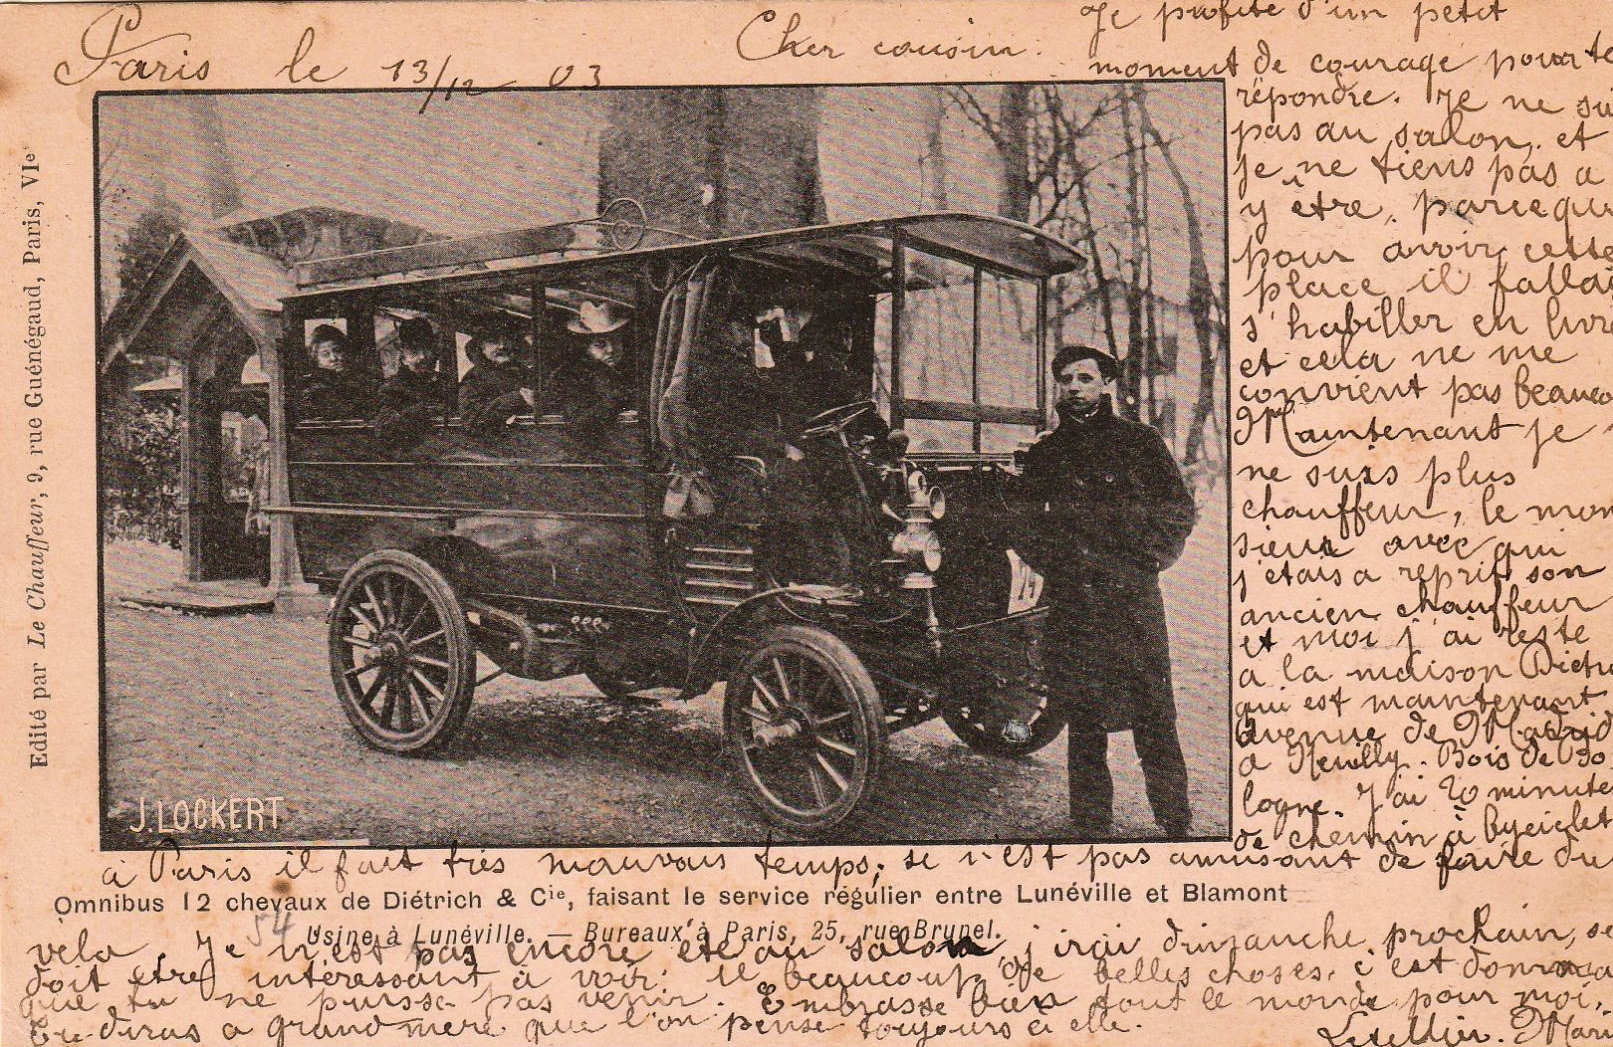 Paris le 13/12 03
Cher cousin.
Je profite d'un petit
moment de courage pour te
répondre. Je ne sui
pas au salon, et
je ne tiens pas a
y être, parceque
pour avoir cette
place il fallai
s'habiller en livr
et cela ne me
convient pas beauco
Maintenant je
ne suis plus
chauffeur, le mon
sieur avec qui
j'etais a repris son
ancien chauffeur
et moi j'ai resté
a la maison Dietri
qui est maintenant
avenue de Madrid
a Neuilly. Bois de Bo
logne. J'ai 20 minutes
de chemin à byciclet
à Paris il fait très mauvais temps; se n'est pas amusant de faire du
vélo. Je n'est pas encore été au salon, j'irai dimanche prochain, se
doit etre intéressant à voir; il beaucoup de belles choses, c'est domma
que tu ne puisse pas venir. Embrasse bien tout le monde pour moi.
Tu diras a grand mère que l'on pense toujours à elle.
Letellier. Mari
Edité par Le Chauffeur, 9, rue Guénégaud, Paris, VIe
J. LOCKERT
Omnibus 12 chevaux de Diétrich & Cie, faisant le service régulier entre Lunéville et Blamont
54
Usine à Lunéville. — Bureaux à Paris, 25, rue Brunel.